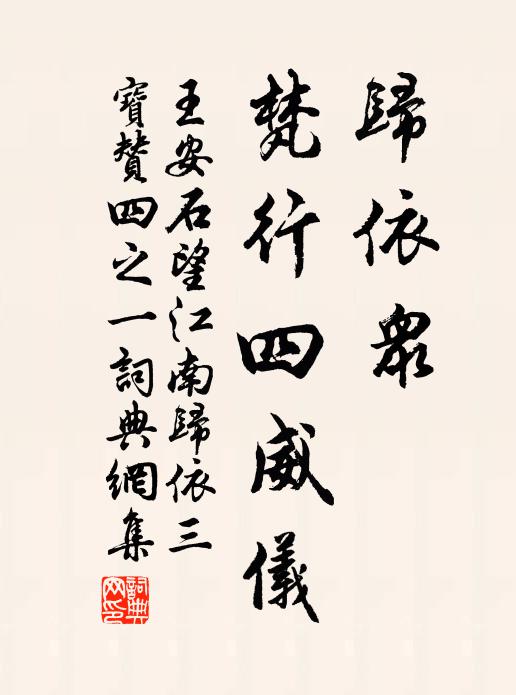 歸依眾
梵行四威儀
王安石望江南歸依三
寶贊四之一詞典網集
詞典网印